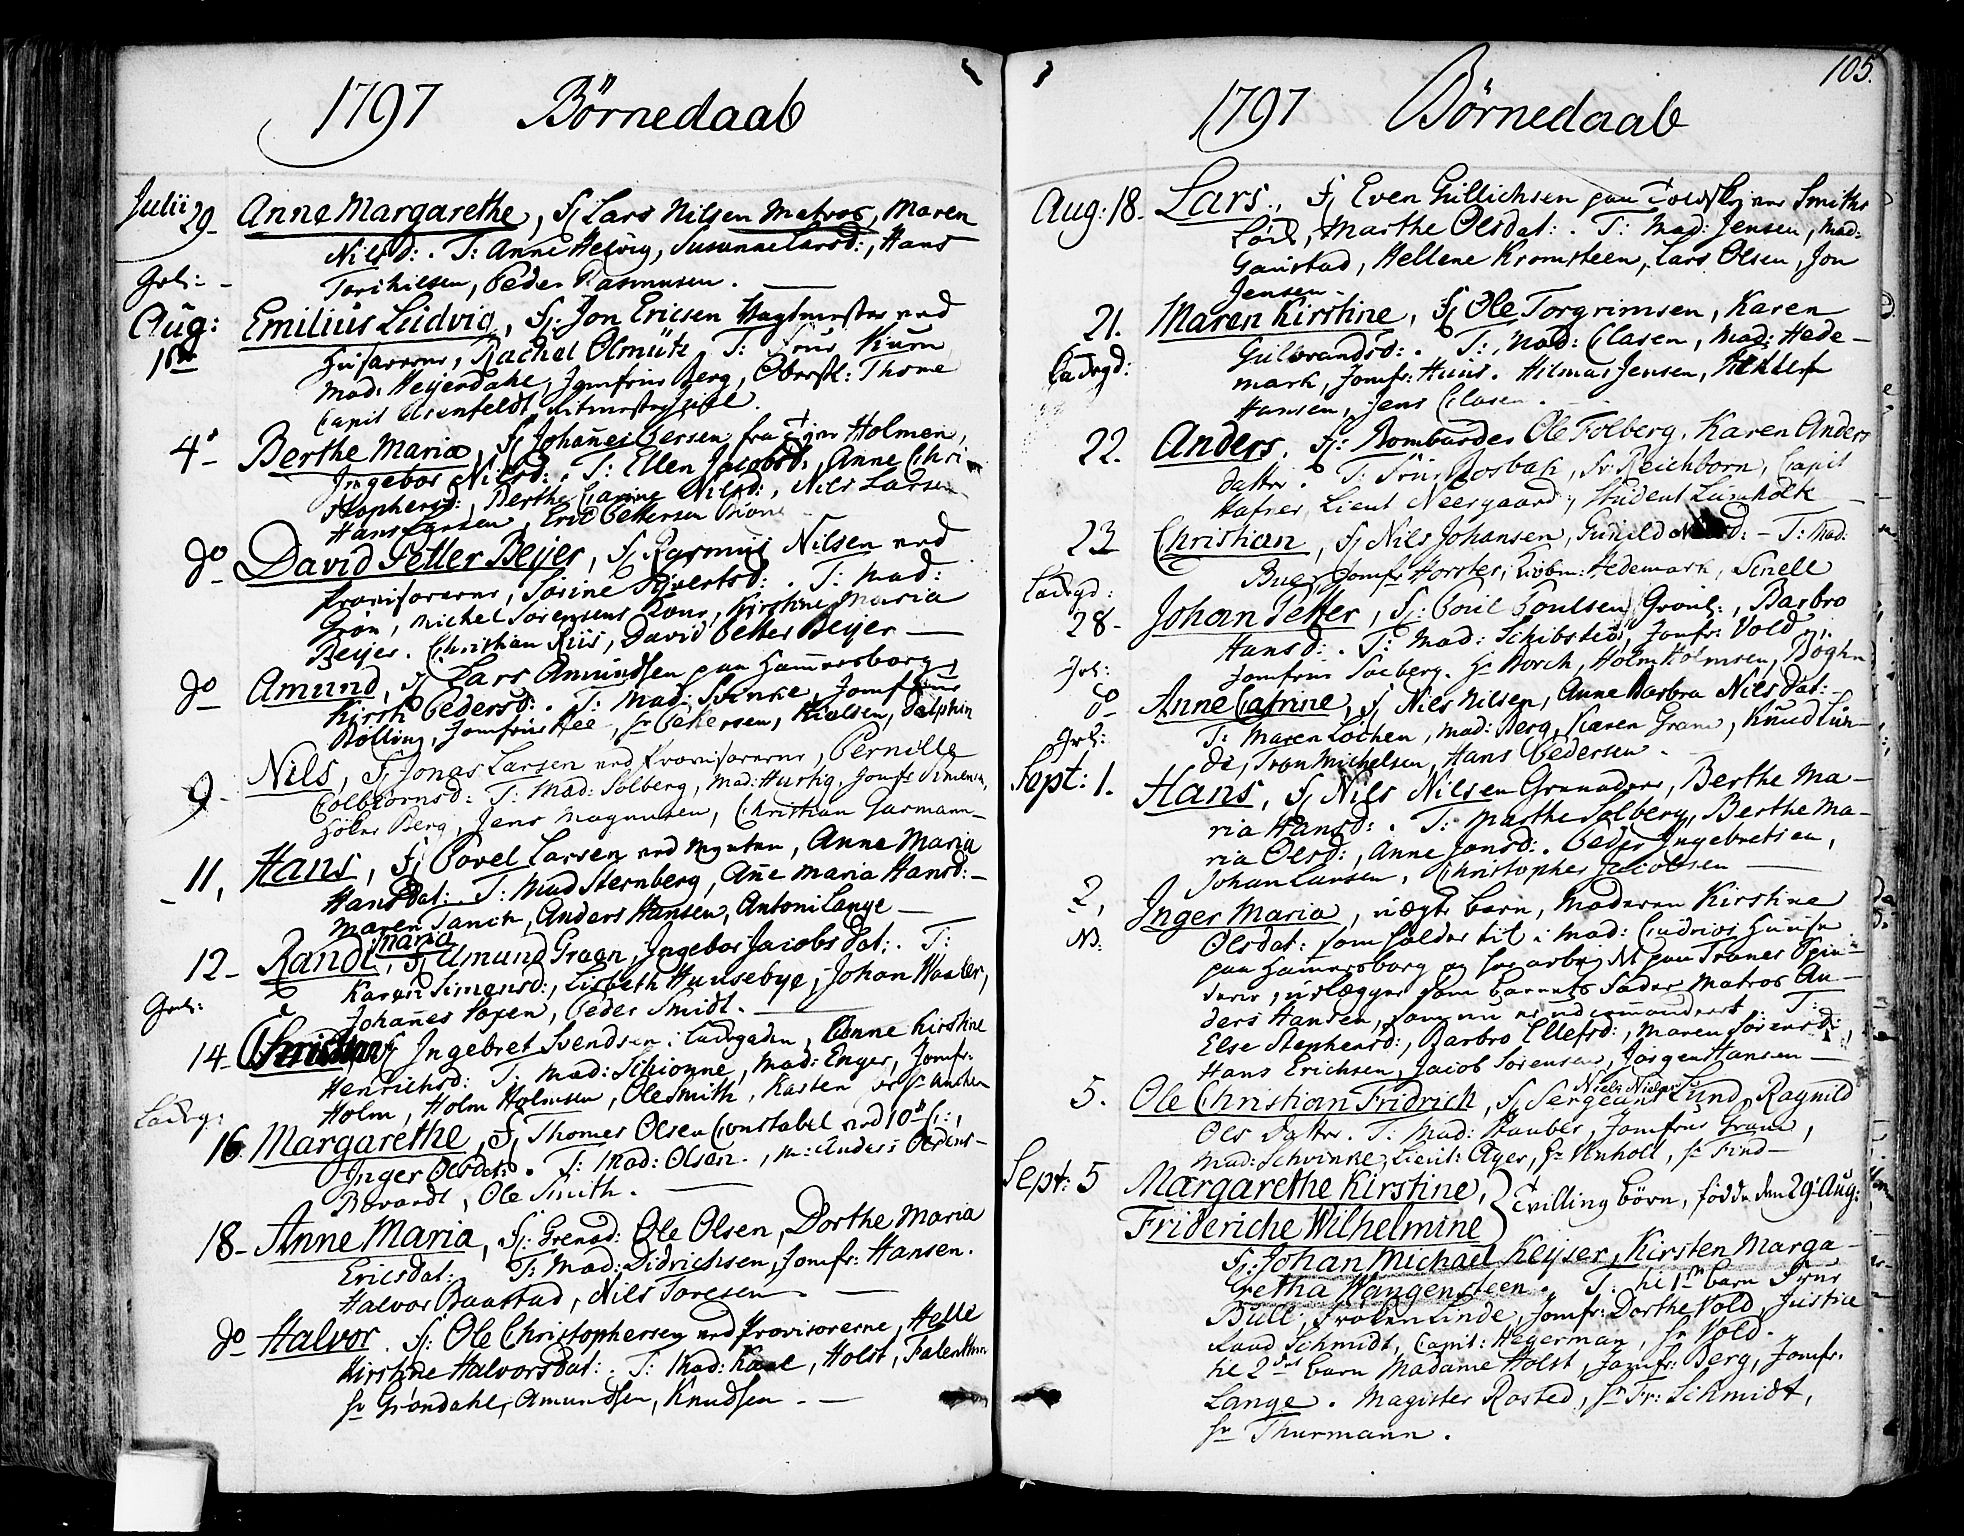 1797 Börnedaab
Julii 29. Anne Margarethe, f Lars Nilsen Matros, Maren
Nilsd: . T: Anne Helvig, Susanne Larsd:, Hans
Torchilsen, Peder Rasmussen.
Grl:
Aug: 1ste Emilius Ludvig, f: Jon Ericsen Vagtmester ved
Husarerne, Rachel Olmütz. T: Frue Kuun
Mad: Heyerdahl, Jomfrue Berg, Oberstl: Thone
Capit
4de Berthe Maria, f Johannes Persen fra Holmen,
Ingebor Nilsd: . T: Ellen Jacobsd:, Anne Chri
stophersd:, Berthe Carine Nilsd:, Nils Larsen
Hans Larsen, Eric Pettersen
do David Petter Beyer, f Rasmus Nilsen ved
Provisorerne, Sorine Sivertsd: . T: Mad:
Gron, Michel Sörensens Kone, Kirstine Maria
Beyer. Christian Riis, David Petter Beyer
do Amund, f Lars Amundsen paa Hammersborg,
Kirst: Pedersd: . T: Mad: Svinke, Jomfrue
Bolling, Jomfrue Ree, Hr Petersen, Nielsen, Dalphin
9 Nils, f: Jonas Larsen ved Provisorerne, Pernille
Colbiörnsd: T: Mad: Solberg, Mad: Hustig, Jomfr Simensen,
Hölne Berg, Jens Magnusen, Christian Garmann
11, Hans, f Povel Larsen ved Mynten, Anne Maria
Hansdat: T: Mad Sternberg, Anne Maria Hansd:
Maren Tanch, Anders Hansen, Antoni Lange
12 Randi Maria, f Amund Graen, Ingebor Jacobsdat: . T:
Karen Simensd:, Lisbeth Hunsebye, Johan Haaler,
Johannes Saxen, Peder Smidt.
Grl:
14 Christian f Ingebret Svendsen i Ladegaden, Anne Kirstine
Henrichsd: T: Mad: Schionne, Mad: Enger, Jomfr:
Holm, Holm Holmsen, Ole Smith, Karsten
Ladeg:
16 Margarethe, f, Thomes Olsen Constabel ved 10de C:,
Inger Olsdat: . T: Mad: Olsen. M: Anders
Bovardt, Ole Smith.
18 Anne Maria, f: Grenad: Ole Olsen, Dorthe Maria
Ericsdat: T: Mad: Didrichsen, Jomfr: Hansen.
Halvor Baastad, Nils Toresen.
do Halvor. f: Ole Christophersen ved Provisorerne, Helle
Kirstine Halvorsdat: . T: Mad: Kaal, Holst, Falenthin
Hr Gröndahl, Amundsen, Knudsen.
105.
1797 Börnedaab
Aug: 18. Lars, f Even Gullichsen paa Smiths
Löck, Marthe Olsdat: . T: Mad: Jensen, Mad:
Gaustad, Hellene Kromsteen, Lars Olsen, Jon
Jensen.
21. Maren Kirstine, f Ole Torgrimsen, Karen
Gulbrandsd: . T: Mad: Clasen, Mad: Hede-
mark, Jomfr: Huus. Hilmar Jensen,
Hansen, Jens Clasen.
Ladegd:
22. Anders. f: Bombarder Ole Folberg. Karen Anders
datter. T: Frue Mosbach, Fr: Reichborn, Capit
Hafner, Lieut Neergaard, Student Lumholtz
23 Christian, f Nils Johansen, Gunild - T: Mad:
Bue, Jomfr Horster, Kiöbm: Hedemark, Schell
Ladegd:
28 Johan Petter, f: Poul Poulsen Grönl:, Barbro
Hansd: . T: Mad: Schibsted, Jomfr: Vold,
Jomfrue Solberg. Hr Borch, Holm Holmsen, Boghn
Grl:
do Anne Catrine, f Nils Nilsen, Anne Barbra Nilsdat:
T: Maren Lochen, Mad: Berg, Karen Gram, Knud Lun-
de, Tron Michelsen, Hans Pedersen.
Grl:
Sept: 1. Hans, f Nils Nilsen Granadeer, Berthe Ma-
ria Hansd: . T: Marthe Solberg, Berthe Ma-
ria Olsd:, Anne Jonsd: . Peder Ingebretsen,
Johan Larsen, Christopher Jacobsen
2, Inger Maria, uægte barn, Moderen Kirstine
Olsdat: som holder til i Mad: Ludvigs Huuse
NB:
paa Hammersborg og har arbeidet paa Tranes Spin-
derie, udlægger som barnets Fader Matros An-
ders Hansen, som nu er udcommanderet. T:
Else Stephensd:, Barbro Ellefsd:, Maren Sörensd:,
Hans Erichsen, Jacob Sörensen, Jörgen Hansen
5. Ole Christian Fridrich, f Sergeant Niels Nielsen Lund, Ragnild
Ols datter. T: Mad: Stauber, Jomfrue Gram,
Mad: Schvinke, Lieut: Ager, Hr Vinholt, Hr Find
Sept: 5 Margarethe Kirstine,
Frideriche Wilhelmine } Tvilling börn, födde den 29de Aug:
f: Johan Michael Keyser, Kirsten Marga-
Gretha Wangensteen. T: til 1ste barn Frue
Bull, Fröken Linde, Jomfr: Dorthe Vold, Justice
Raad Schmidt, Capit: Hegerman, Hr Vold.
til 2det barn Madame Holst, Jomfr: Berg, Jomfr.
Lange. Magister Rosted, Hr Fr: Schmidt,
Hr Thurmann.